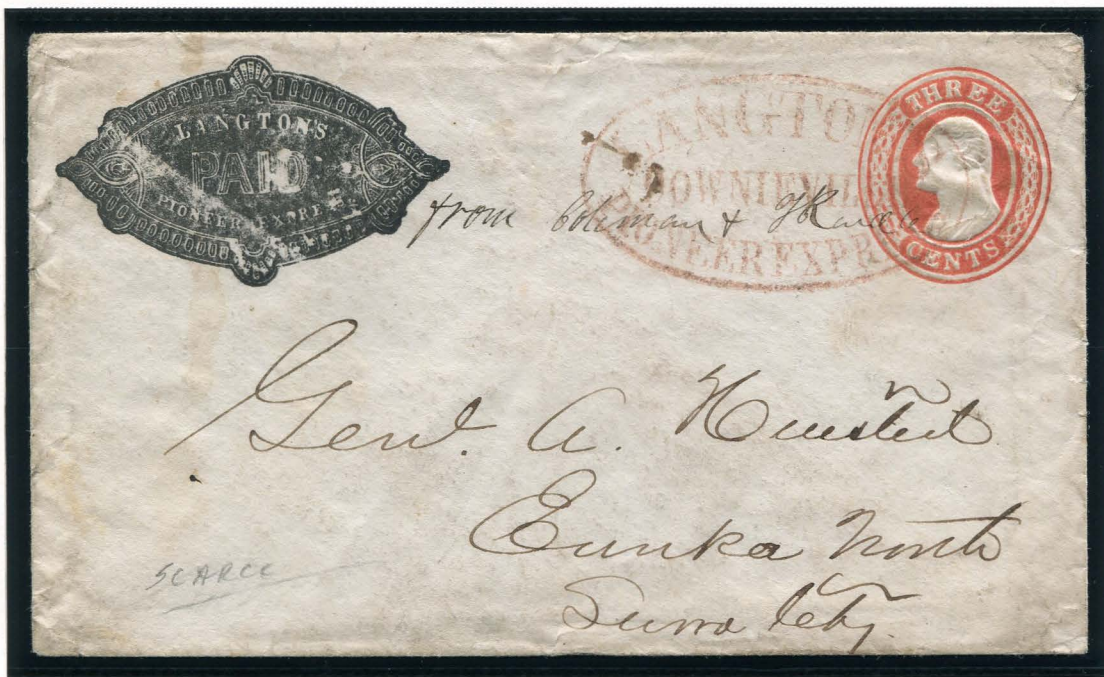 LANGTON'S
PAID
PIONEER EXPRESS
LANGTO
DOWNIEVIL
PIONEER EXPRE
THREE
CENTS
from Coleman &
Genl. A. Huested
Eunka North
Sierra Cty.
SCARCE